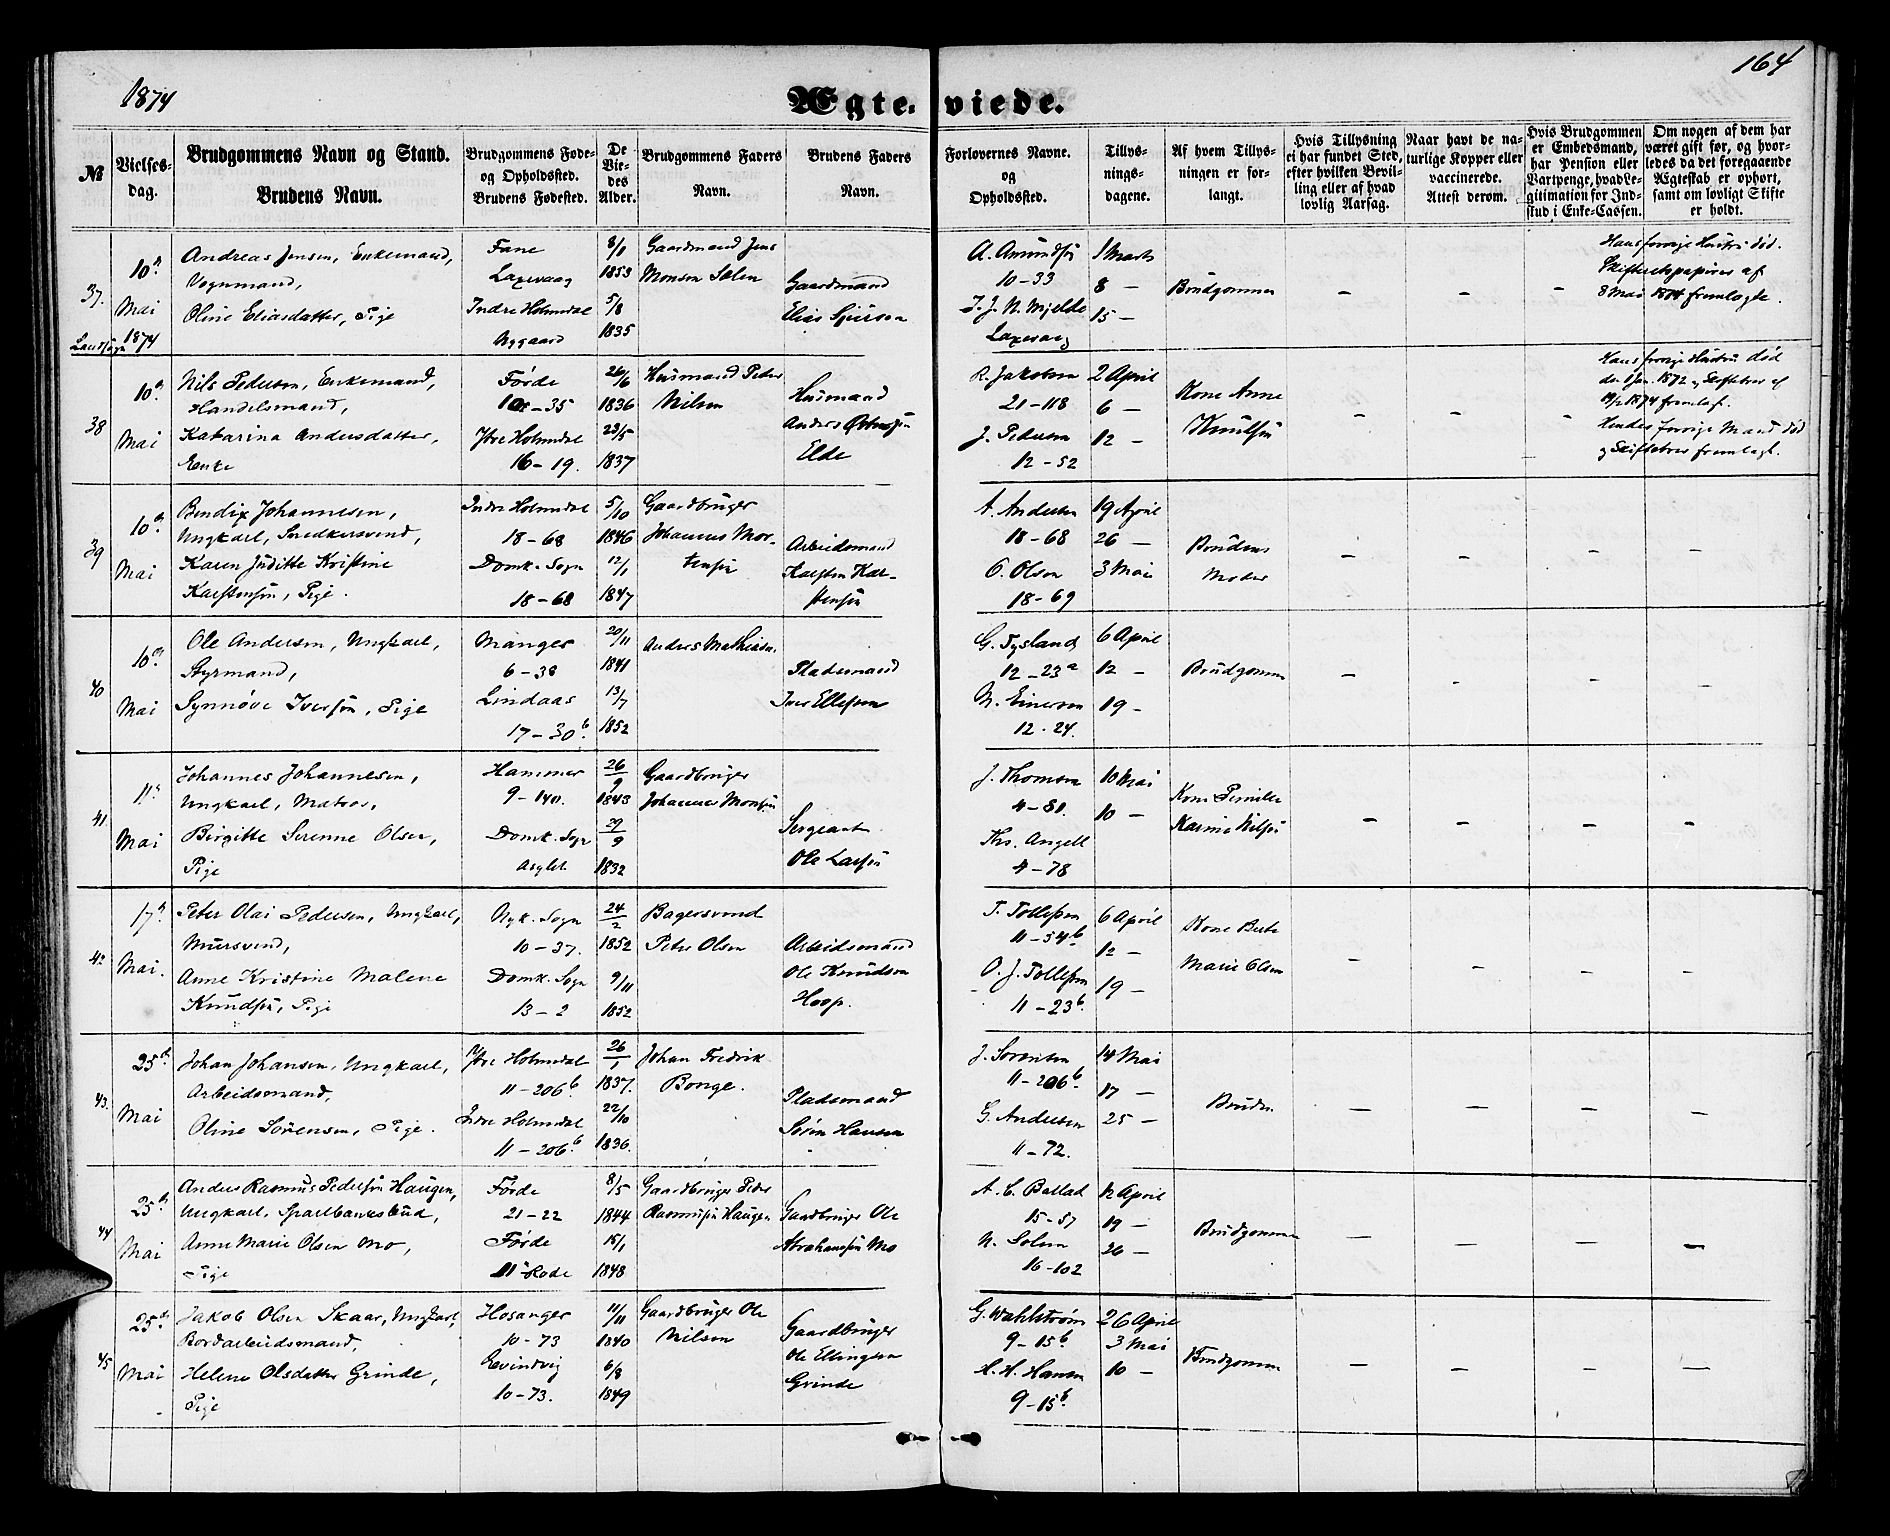 1874
Ægteviede.
164
№
Vielses-
dag.
Brudgommens Navn og Stand.
Brudens Navn.
Brudgommens Føde-
og Opholdssted.
Brudens Fødested.
De
Vie-
des
Alder.
Brudgommens Faders
Navn.
Brudens Faders
Navn.
Forlovernes Navne.
og
Opholdssted.
Tillys-
nings-
dagene.
Af hvem Tillys-
ningen er for-
langt.
Hvis Tillysning
ei har fundet Sted,
efter hvilken Bevil-
ling eller af hvad
lovlig Aarsag.
Naar havt de na-
turlige Kopper eller
vaccinerede.
Attest derom.
Hvis Brudgommen
er Embedsmand,
har Pension eller
Vartpenge, hvad Le-
gitimation for Ind-
skud i Enke-Cassen.
Om nogen af dem har
været gift før, og hvor-
ledes da det foregaaende
Ægteskab er ophørt,
samt om lovligt Skifte
er holdt.
37.
10de
Mai
1874
Andreas Jensen, Enkemand,
Vognmand,
Oline Eliasdatter, Pige
Fane
Laxevaag
Indre Holmedal
Nygaard
8/1
1853
5/8
1835
Gaardmand Jens
Monsen
Gaardmand
Elias
A. Amundsøn
10-33
J. J. N. Mjelde
Laxevaag
1 Marts
8 —
15 —
Brudgommen
—
—
—
Hans forrige Hustru død.
Skifteretspapirer af
8 Mai 1874 fremlagte.
38
10de
Mai
Nils Pedersen, Enkemand,
Handelsmand,
Katarina Andersdatter,
Enke
Førde
10-35
Ytre Holmedal
16-19.
26/6
1836
23/5
1837
Husmand Peder
Nilsen
Husmand
Anders
Elde
R. Jakobsen
21-118
J. Pedersen
12-52
2 April
6 —
12 —
Kone Anne
Knutsøn
—
—
—
Hans forrige Hustru død
den 1 Jan. 1872 og Skiftebrev af
1874 fremlagt.
Hendes forrige Mand død
og Skiftebrev fremlagt.
39
10de
Mai
Bendix Johannesen,
Ungkarl, Snedkersvend,
Karen Juditte Kristine
Karstensøn, Pige.
Indre Holmedal
18-68
Domk. Sogn
18-68
5/10
1846
12/1
1847
Gaardbruger
Johannes Mor-
tensøn
Arbeidsmand
Karsten Kar-
stensøn
A. Andersen
18-68
O. Olson
18-69
19 April
26 —
3 Mai
Brudens
Moder
—
—
—
—
40
10de
Mai
Ole Andersen, Ungkarl,
Styrmand,
Synnøve Iversøn, Pige
Manger
6-38
Lindaas
17-30b.
20/11
1841
13/7
1852
Anders Mathiasen.
Pladsmand
Iver Ellefsen
G. Tysland
12-23a
N. Einersen
12-24.
6 April
12 —
19 —
Brudgommen
—
—
—
—
41.
11te
Mai
Johannes Johannesen,
Ungkarl, Matros,
Birgitte Serenne Olsen,
Pige
Hammer
9-140.
Domk. Sogn
Asylet.
26/9
1843
29/9
1832
Gaardbruger
Johannes Monsøn
Sergeant
Ole Larsøn
J. Thomsen
4-81.
Chr. Angell
4-78
10 Mai
10 —
Kone Pernille
Karine Nilsøn
—
—
—
—
42
17de
Mai.
Peter Olai Pedersen, Ungkarl,
Mursvend,
Anne Kristine Malene
Knudsøn, Pige
Nyk. Sogn
10-37.
Domk. Sogn
13-2
24/2
1852
9/11
1852
Bagersvend
Peter Olsen
Arbeidsmand
Ole Knudsen
Hoop.
T. Tollefsen
11-54b
O. J. Tollefsen
11-23b.
6 April
12 —
19 —
Kone Berte
Marie Olsen
—
—
—
—
43.
25de
Mai
Johan Johansen, Ungkarl,
Arbeidsmand,
Oline Sørensen, Pige.
Ytre Holmedal
11-206b
Indre Holmedal
11-206b.
26/1
1837.
22/10
1836.
Johan Fredrik
Bonge.
Pladsmand
Søren Hansen
J. Sørensen
11-206b.
G. Andersen
11-72.
14 Mai
17 —
25 —
Bruden
—
—
—
—
44
25de
Mai
Anders Rasmus Pedersøn Haugen,
Ungkarl, Sparebanksbud,
Anne Marie Olsen Mo,
Pige
Førde
21-22
Førde
11te Rode
8/5
1844
15/1
1848
Gaardbruger Peder
Rasmusøn Haugen
Gaardbruger Ole
Abrahamsøn Mo
A. C. Ballad
15-57
N. Solem
16-102
12 April
19 —
26 —
Brudgommen
—
—
—
—
45
25de
Mai
Jakob Olsen Skaar, Ungkarl,
Bordarbeidsmand,
Helene Olsdatter Grinde,
Pige
Hosanger
10-73
Evindvig
10-73.
11/11
1840
6/8
1849
Gaardbruger Ole
Nilsen
Gaardbruger
Ole Ellingsen
Grinde
G. Wahlstrøm
9-15b
H. H. Hansen
9-15b.
26 April
3 Mai
10 —
Brudgommen
—
—
—
—